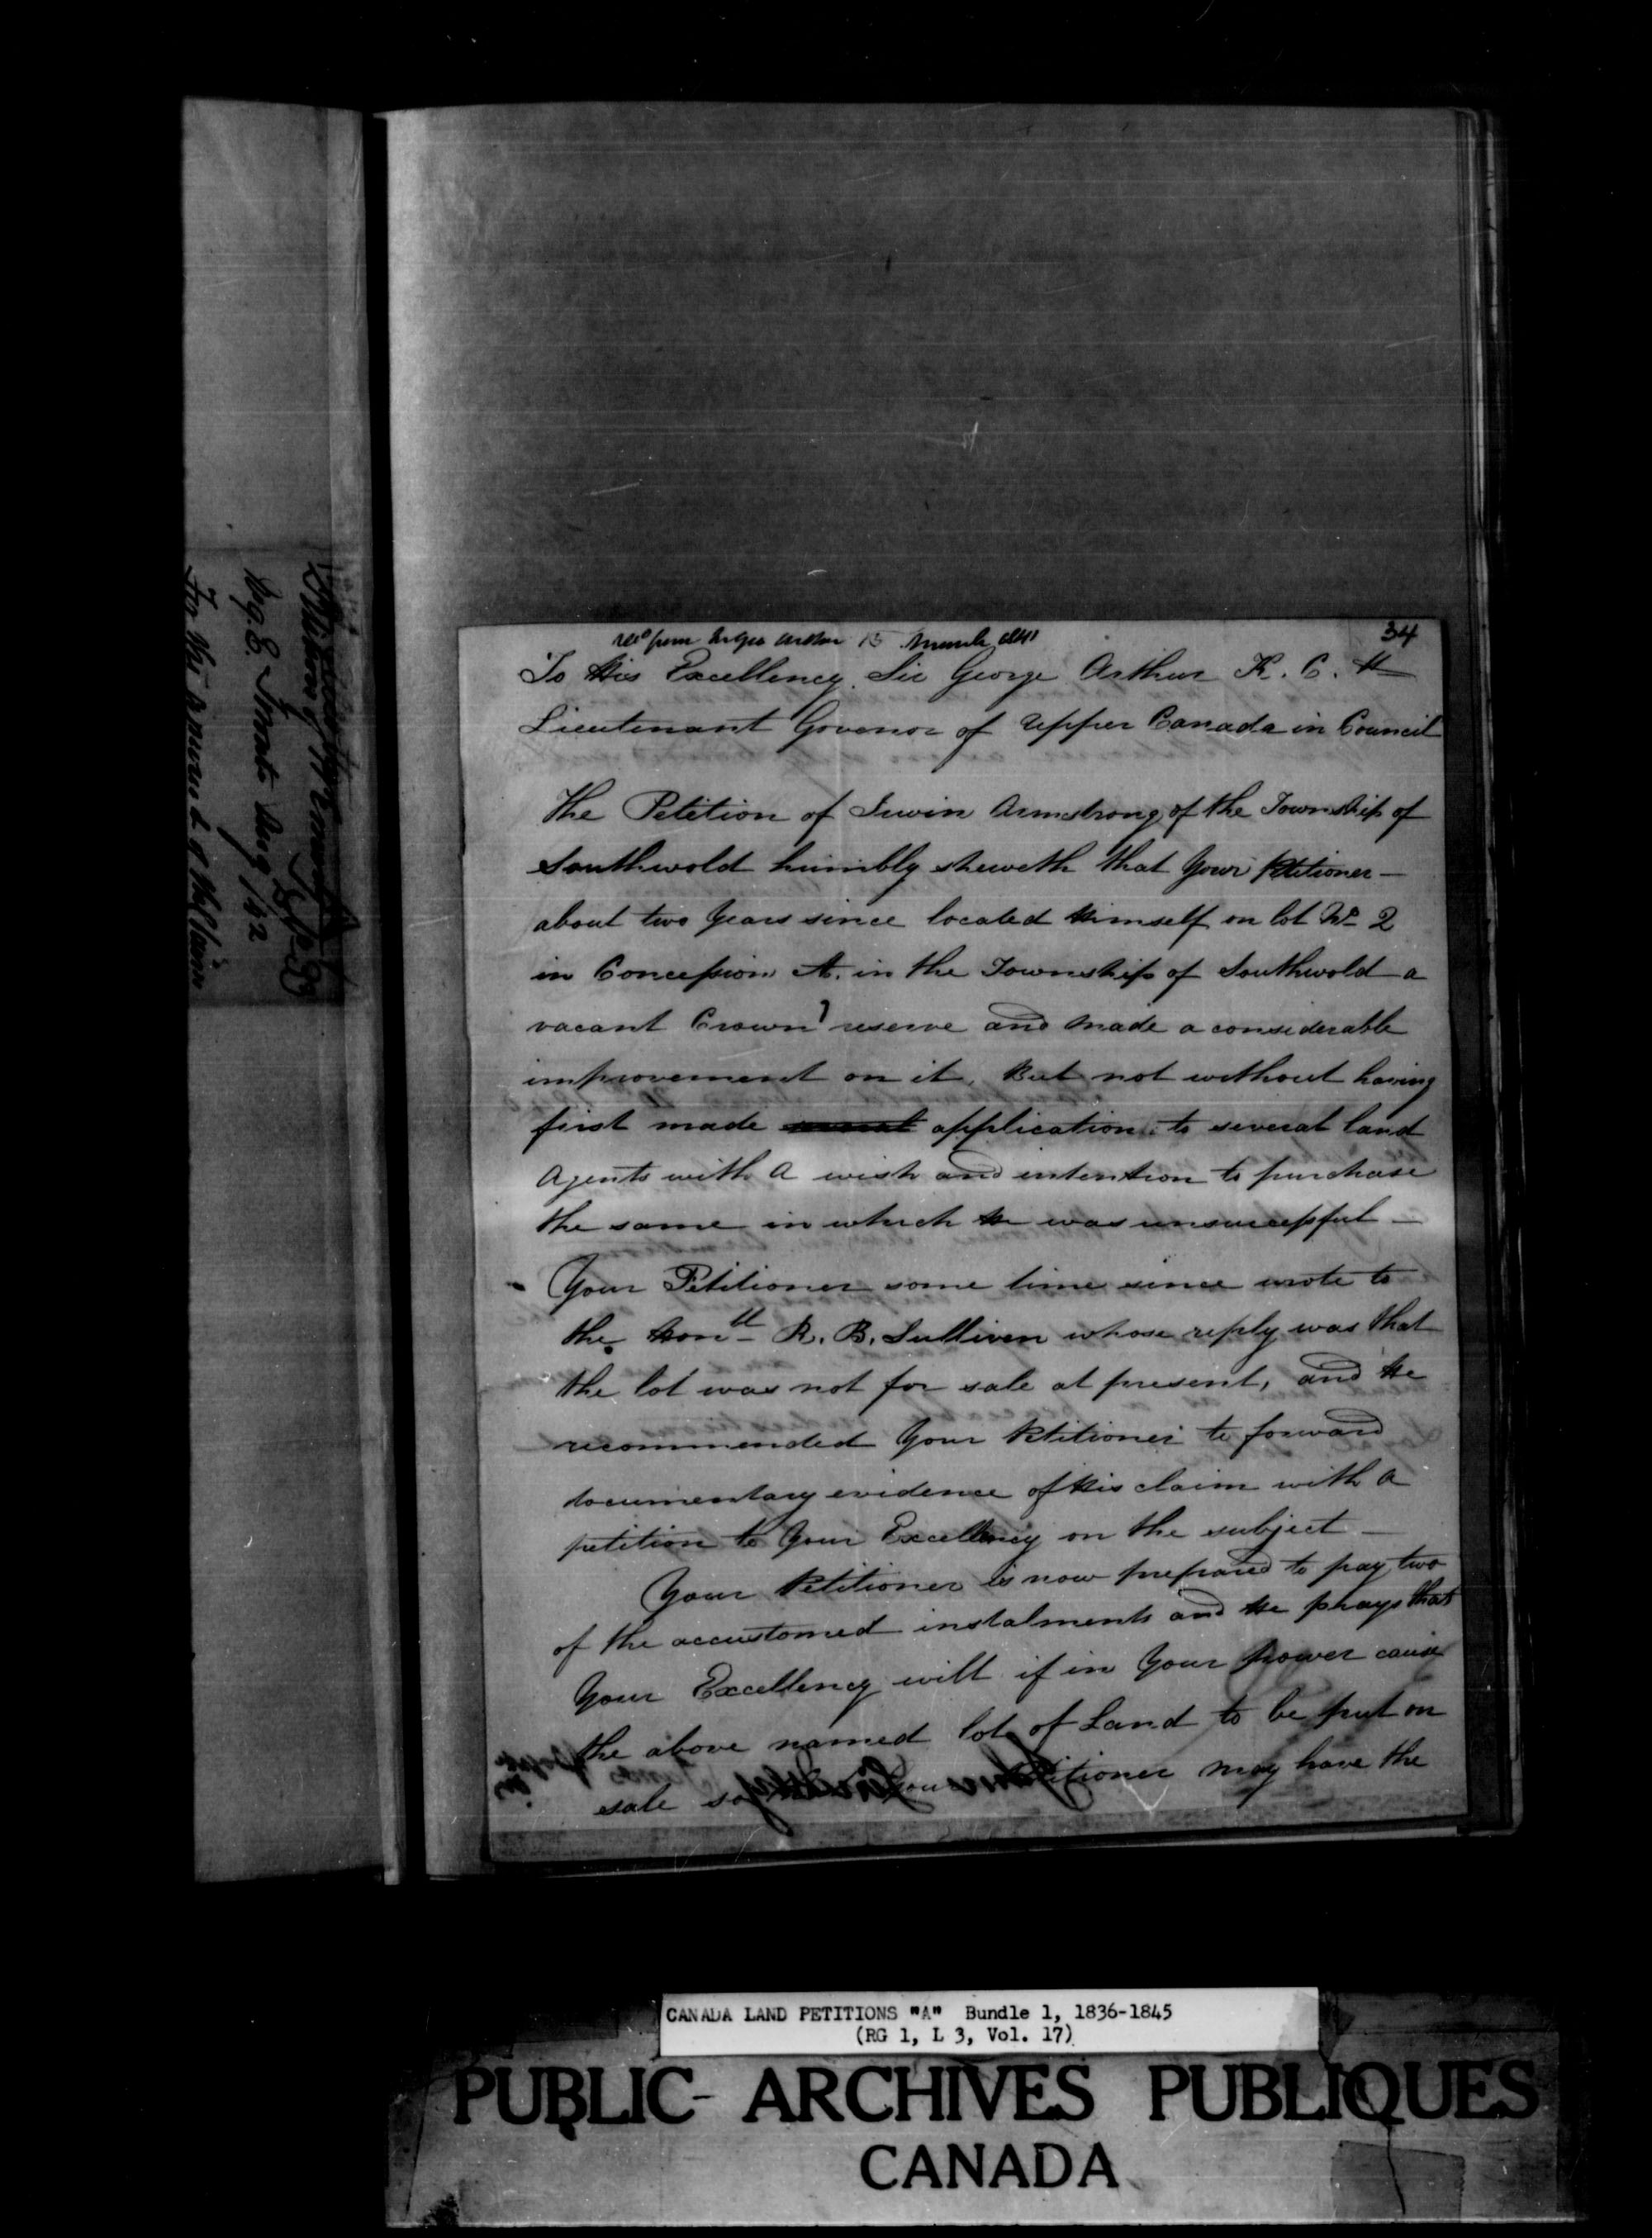 34
To His Excellency Sir George Arthur K. C. H
Lieutenant Govenor of Upper Canada in Council
The Petition of Irwin Armstrong of the Township of
Southwold humbly sheweth that Your Petitioner —
about two Years since located himself on lot No 2
in Concession A. in the Township of Southwold a
vacant Crown reserve and made a considerable
improvement on it, But not without having
first made application to several land
Agents with a wish and intention to purchase
the same in which he was unsuccessful —
Your Petitioner some time since wrote to
the Honll R. B. Sulliven whose reply was that
the lot was not for sale at present, and he
recommended Your Petitioner to forward
documentary evidence of his claim with a
petition to Your Excellency on the subject —
Your Petitioner is now prepared to pay two
of the accustomed instalments and he prays that
Your Excellency will if in Your power cause
the above named lot of Land to be put on
sale so that Your Petitioner may have the
CANADA LAND PETITIONS "A" Bundle 1, 1836-1845
(RG 1, L 3, Vol. 17)
PUBLIC ARCHIVES PUBLIQUES
CANADA